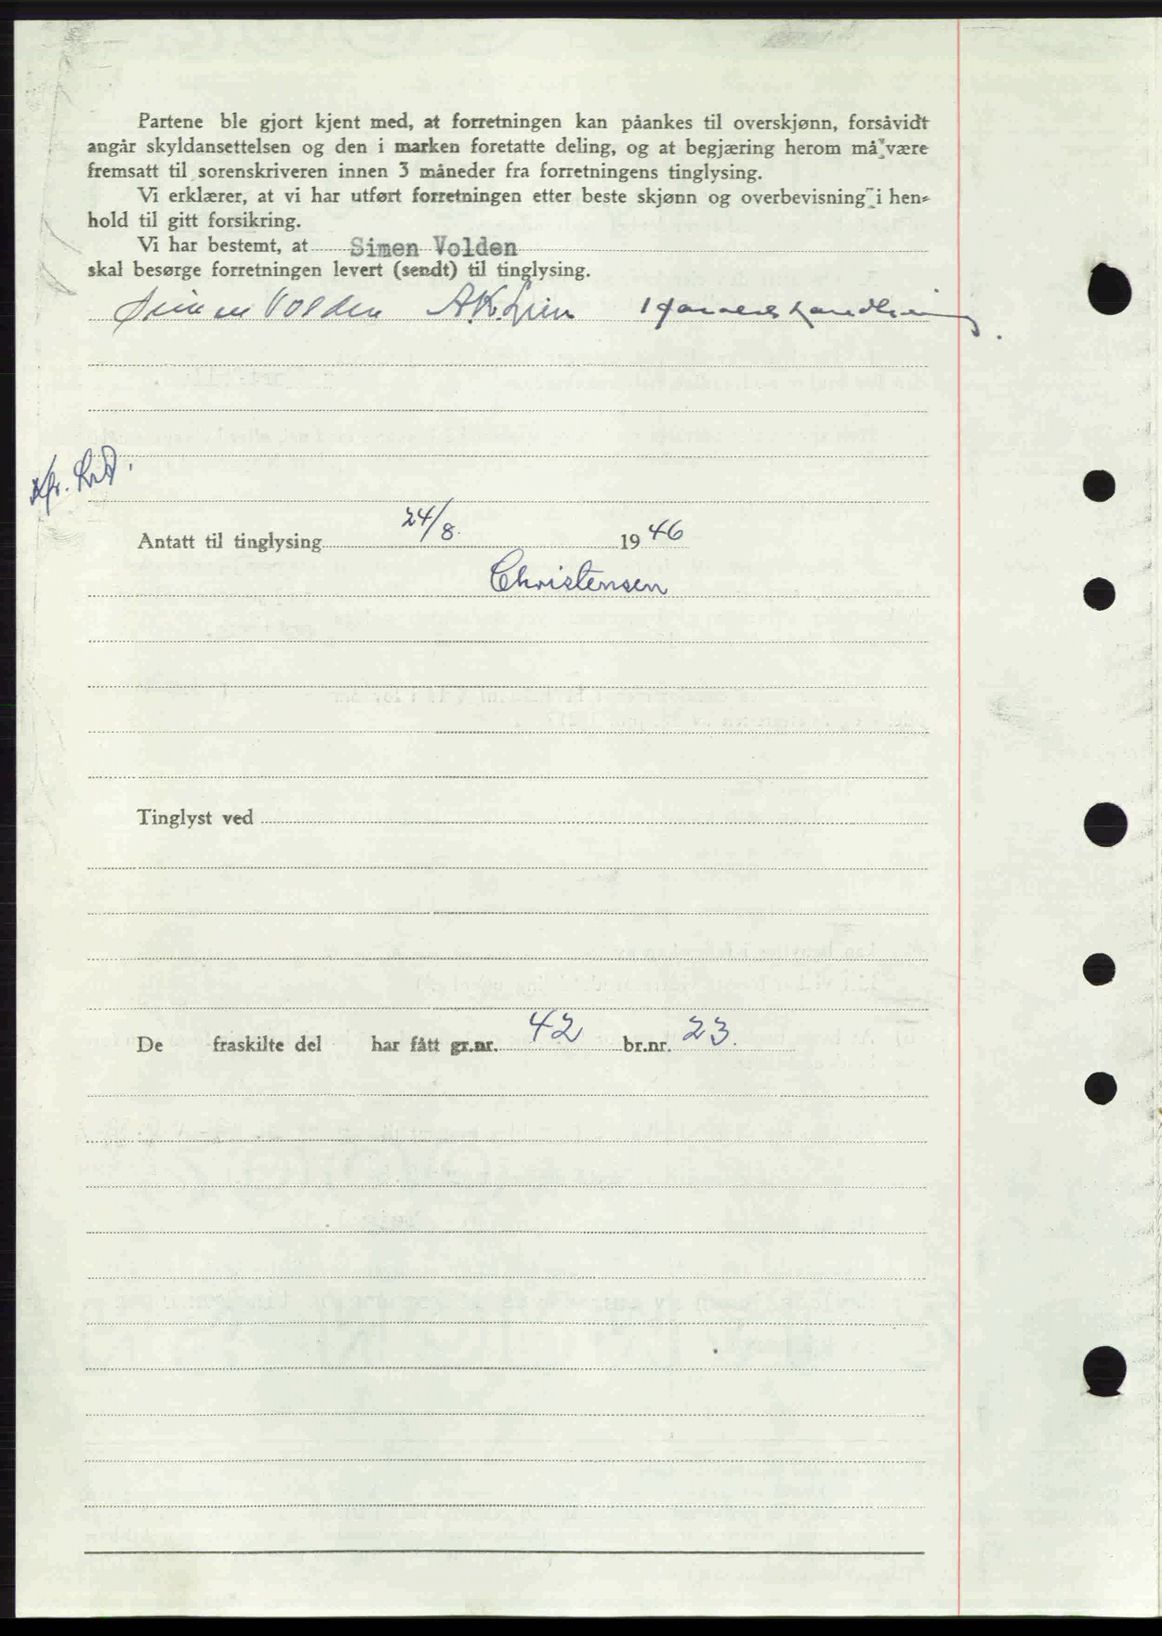 Partene ble gjort kjent med, at forretningen kan påankes til overskjønn, forsåvidt
angår skyldansettelsen og den i marken foretatte deling, og at begjæring herom må være
fremsatt til sorenskriveren innen 3 måneder fra forretningens tinglysing.
Vi erklærer, at vi har utført forretningen etter beste skjønn og overbevisning i hen-
hold til gitt forsikring.
Vi har bestemt, at Simen Volden
skal besørge forretningen levert (sendt) til tinglysing.
Simen Volden A.K. Lien
Kfr.
Antatt til tinglysing 24/8. 1946
Christensen
Tinglyst ved
De fraskilte del har fått gr.nr. 42 br.nr. 23.